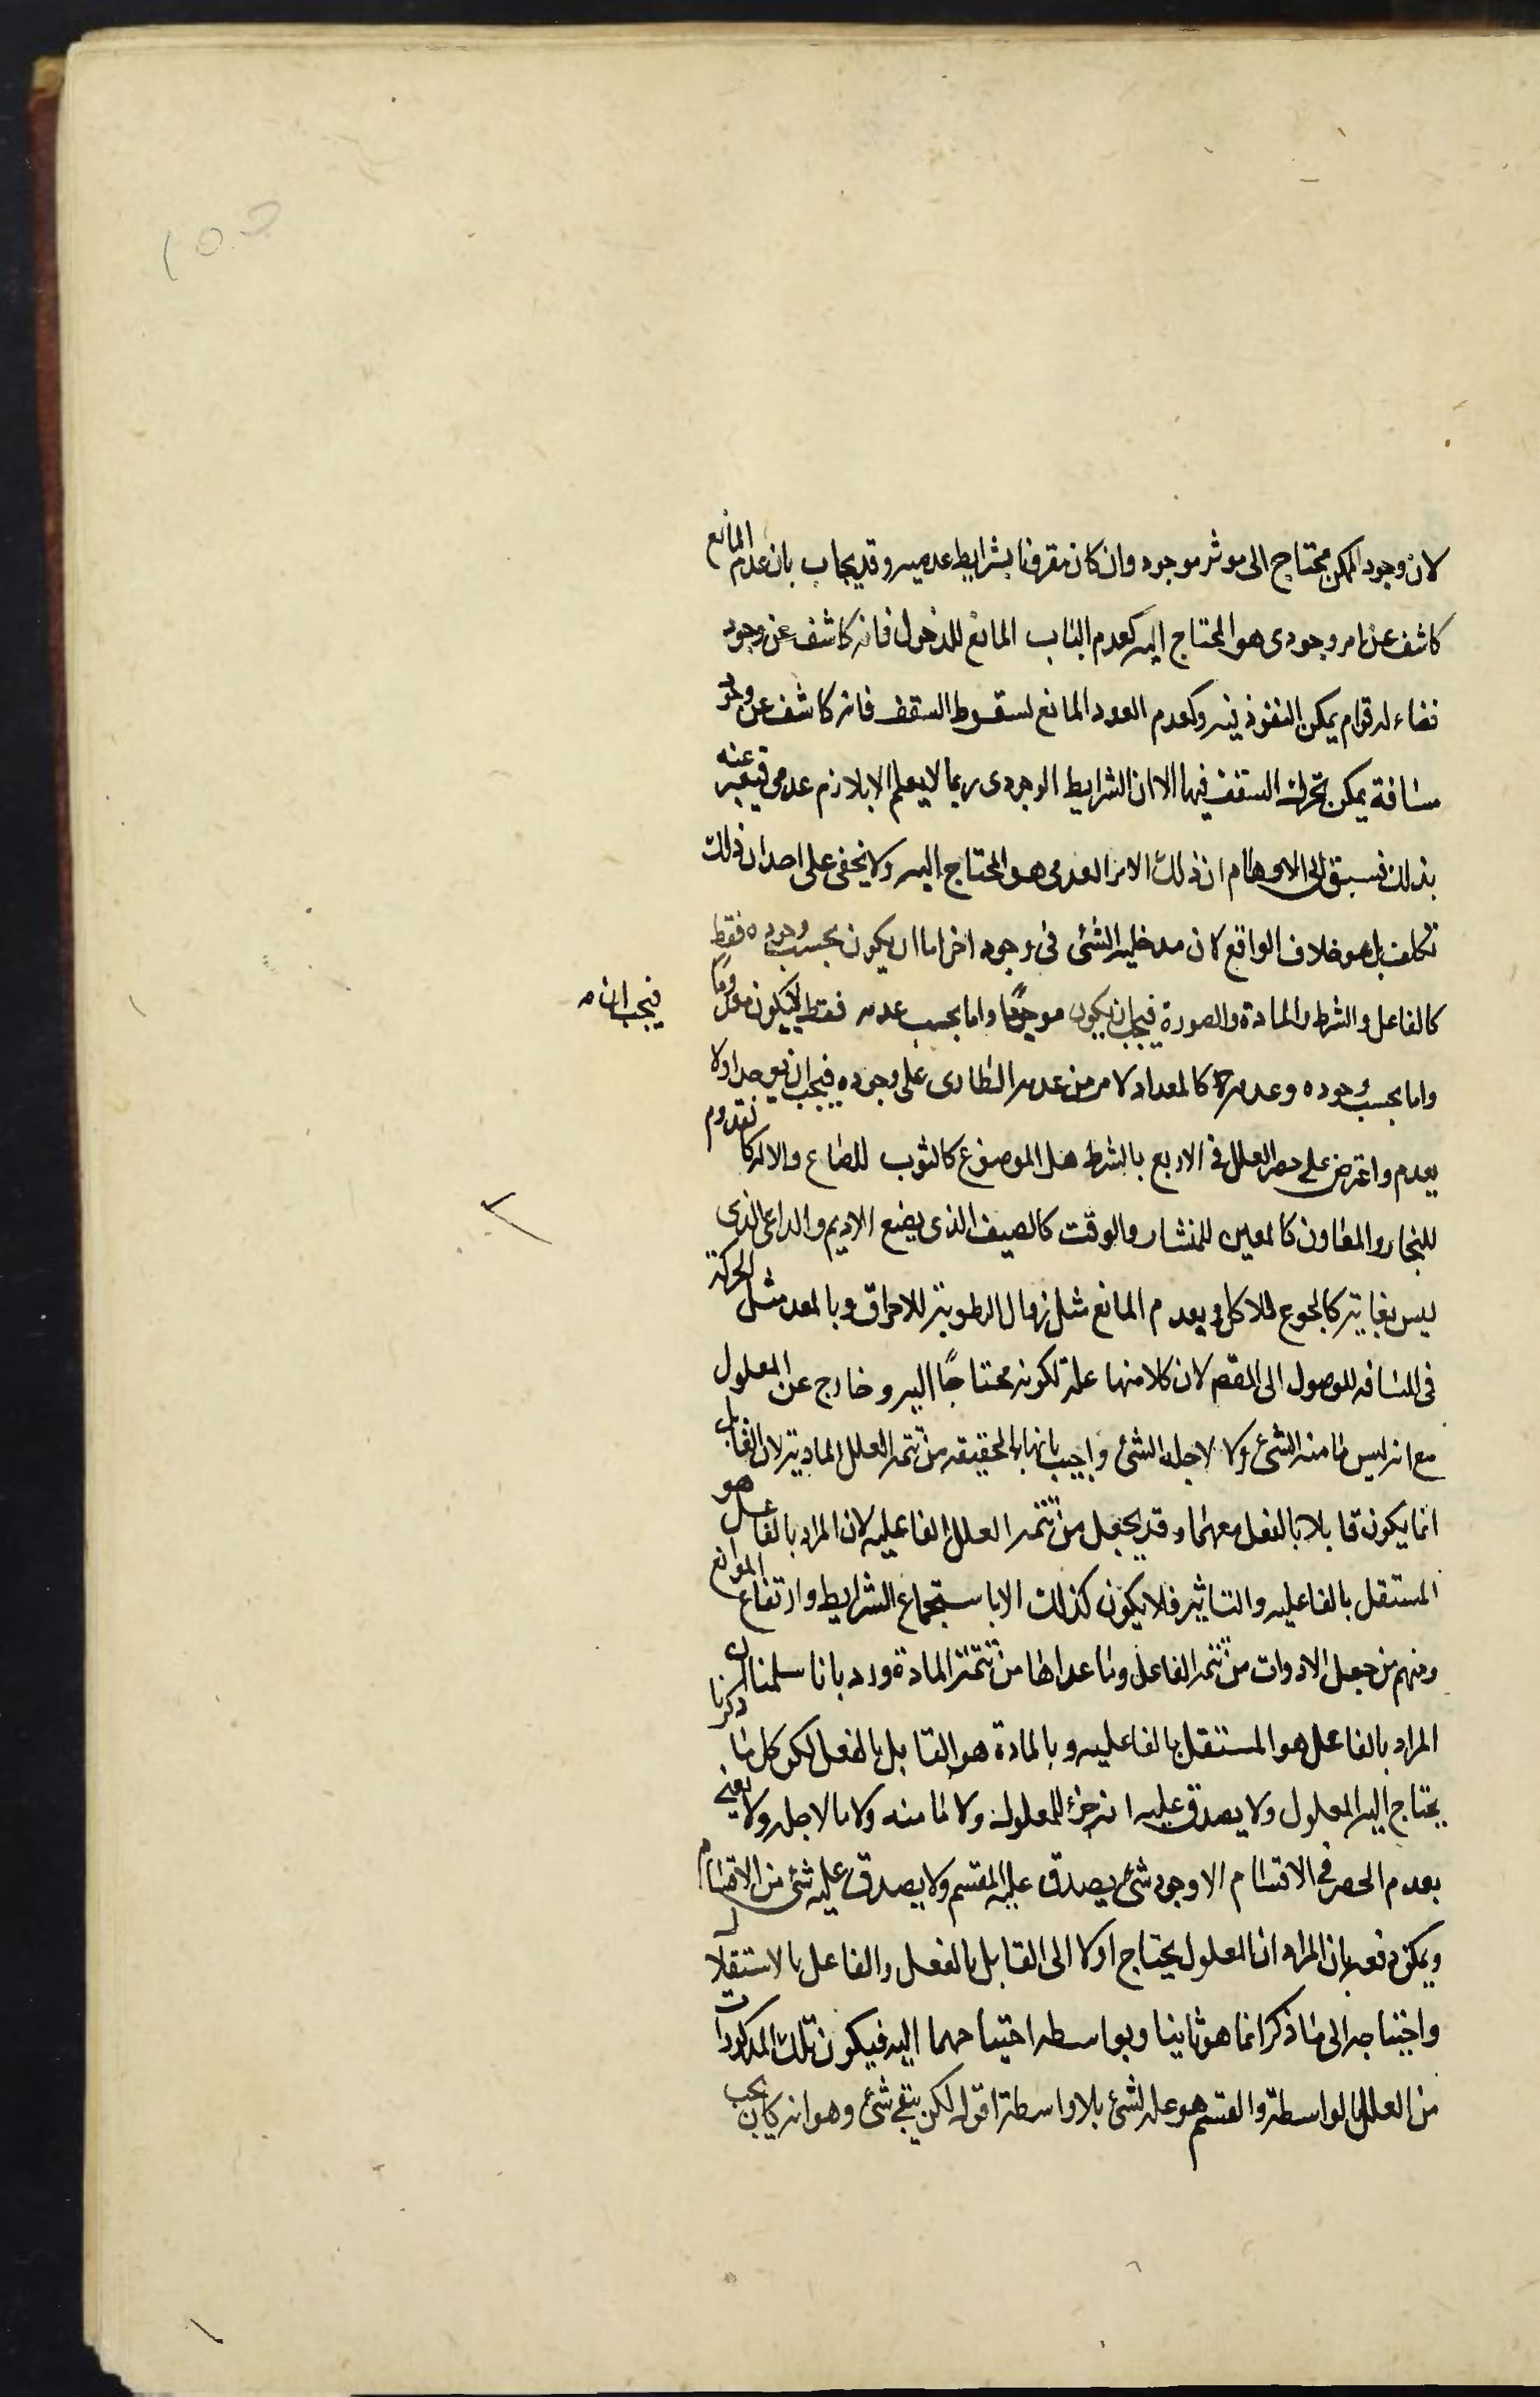 لان وجود الممكن محتاج الى موثر موجود وان كان مقرونا بشرايط عدميه وقد يجاب بان عدم المانع
كاشف عن امر وجودى هو المحتاج اليه كعدم الباب المانع للدخول فانه كاشف عن وجود
فضاء له قوام يمكن النفوذ فيه وكعدم العمود المانع لسقوط السقف فانه كاشف عن وجود
مسافة يمكن تحرك السقف فيها الا ان الشرايط الوجودى ربما لا يعلم الا بلازم عدمى فيعبر عنه
بذلك فسبق الى الاوهام ان ذلك الامر العدمى هو المحتاج اليه ولا يخفى على احد ان ذلك
تكلف بل هو خلاف الواقع لان مدخليه الشئ فى وجود اخر اما ان يكون بحسب وجوده فقط
كالفاعل والشرط والمادة والصورة فيجب ان يكون موجودا واما بحسب عدمه فقط فيكون معدوما
فيجب ان
واما بحسب وجوده وعدمه كالمعداد لامر من عدمه الطارى على وجوده فيجب ان يوجد اولا
يعدم واعترض على حصر العلل فى الاربع بالشرط مثل الموضوع كالثوب للصباغ والاله كالقدوم
للنجار والمعاون كالمعين للمنشار والوقت كالصيف الذى يصنع الاديم والداعى الذى
ليس بغاية كالجوع للاكل وبعدم المانع مثل زوال الرطوبة للاحراق وبالمعد مثل الحركة
فى المسافه للوصول الى المقصد لان كلا منها علة لكونه محتاجًا اليه وخارج عن المعلول
مع انه ليس ما منه الشئ ولا لاجله الشئ واجيب بانها بالحقيقه من تتمه العلل الماديه لان القابل
انما يكون قابلا بالفعل معها وقد يجعل من تتمه العلل الفاعليه لان المراد بالفاعل هو
المستقل بالفاعليه والتاثير فلا يكون كذلك الا باستجماع الشرايط وارتفاع الموانع
ومنهم من جعل الادوات من تتمه الفاعل وما عداها من تتمة المادة ورد بانا سلمنا ان
المراد بالفاعل هو المستقل بالفاعليه وبالمادة هو القابل بالفعل لكن كل ما ذكرنا
يحتاج اليه المعلول ولا يصدق عليه انه جزء للمعلول ولا ما منه ولا ما لاجله ولا يعنى
بعدم الحصر فى الاقسام الا وجود شئ يصدق عليه المقسم ولا يصدق عليه شئ من الاقسام
ويمكن دفعه بان المراد ان المعلول يحتاج اولا الى القابل بالفعل والفاعل بالاستقلال
واحتياجه الى ما ذكر انما هو ثانيا وبواسطه احتياجهما اليه فيكون تلك المذكورات
من العلل بالواسطة والقسم هو علة لشئ بلا واسطة اقول لكن بقى شئ وهو انه كان يجب